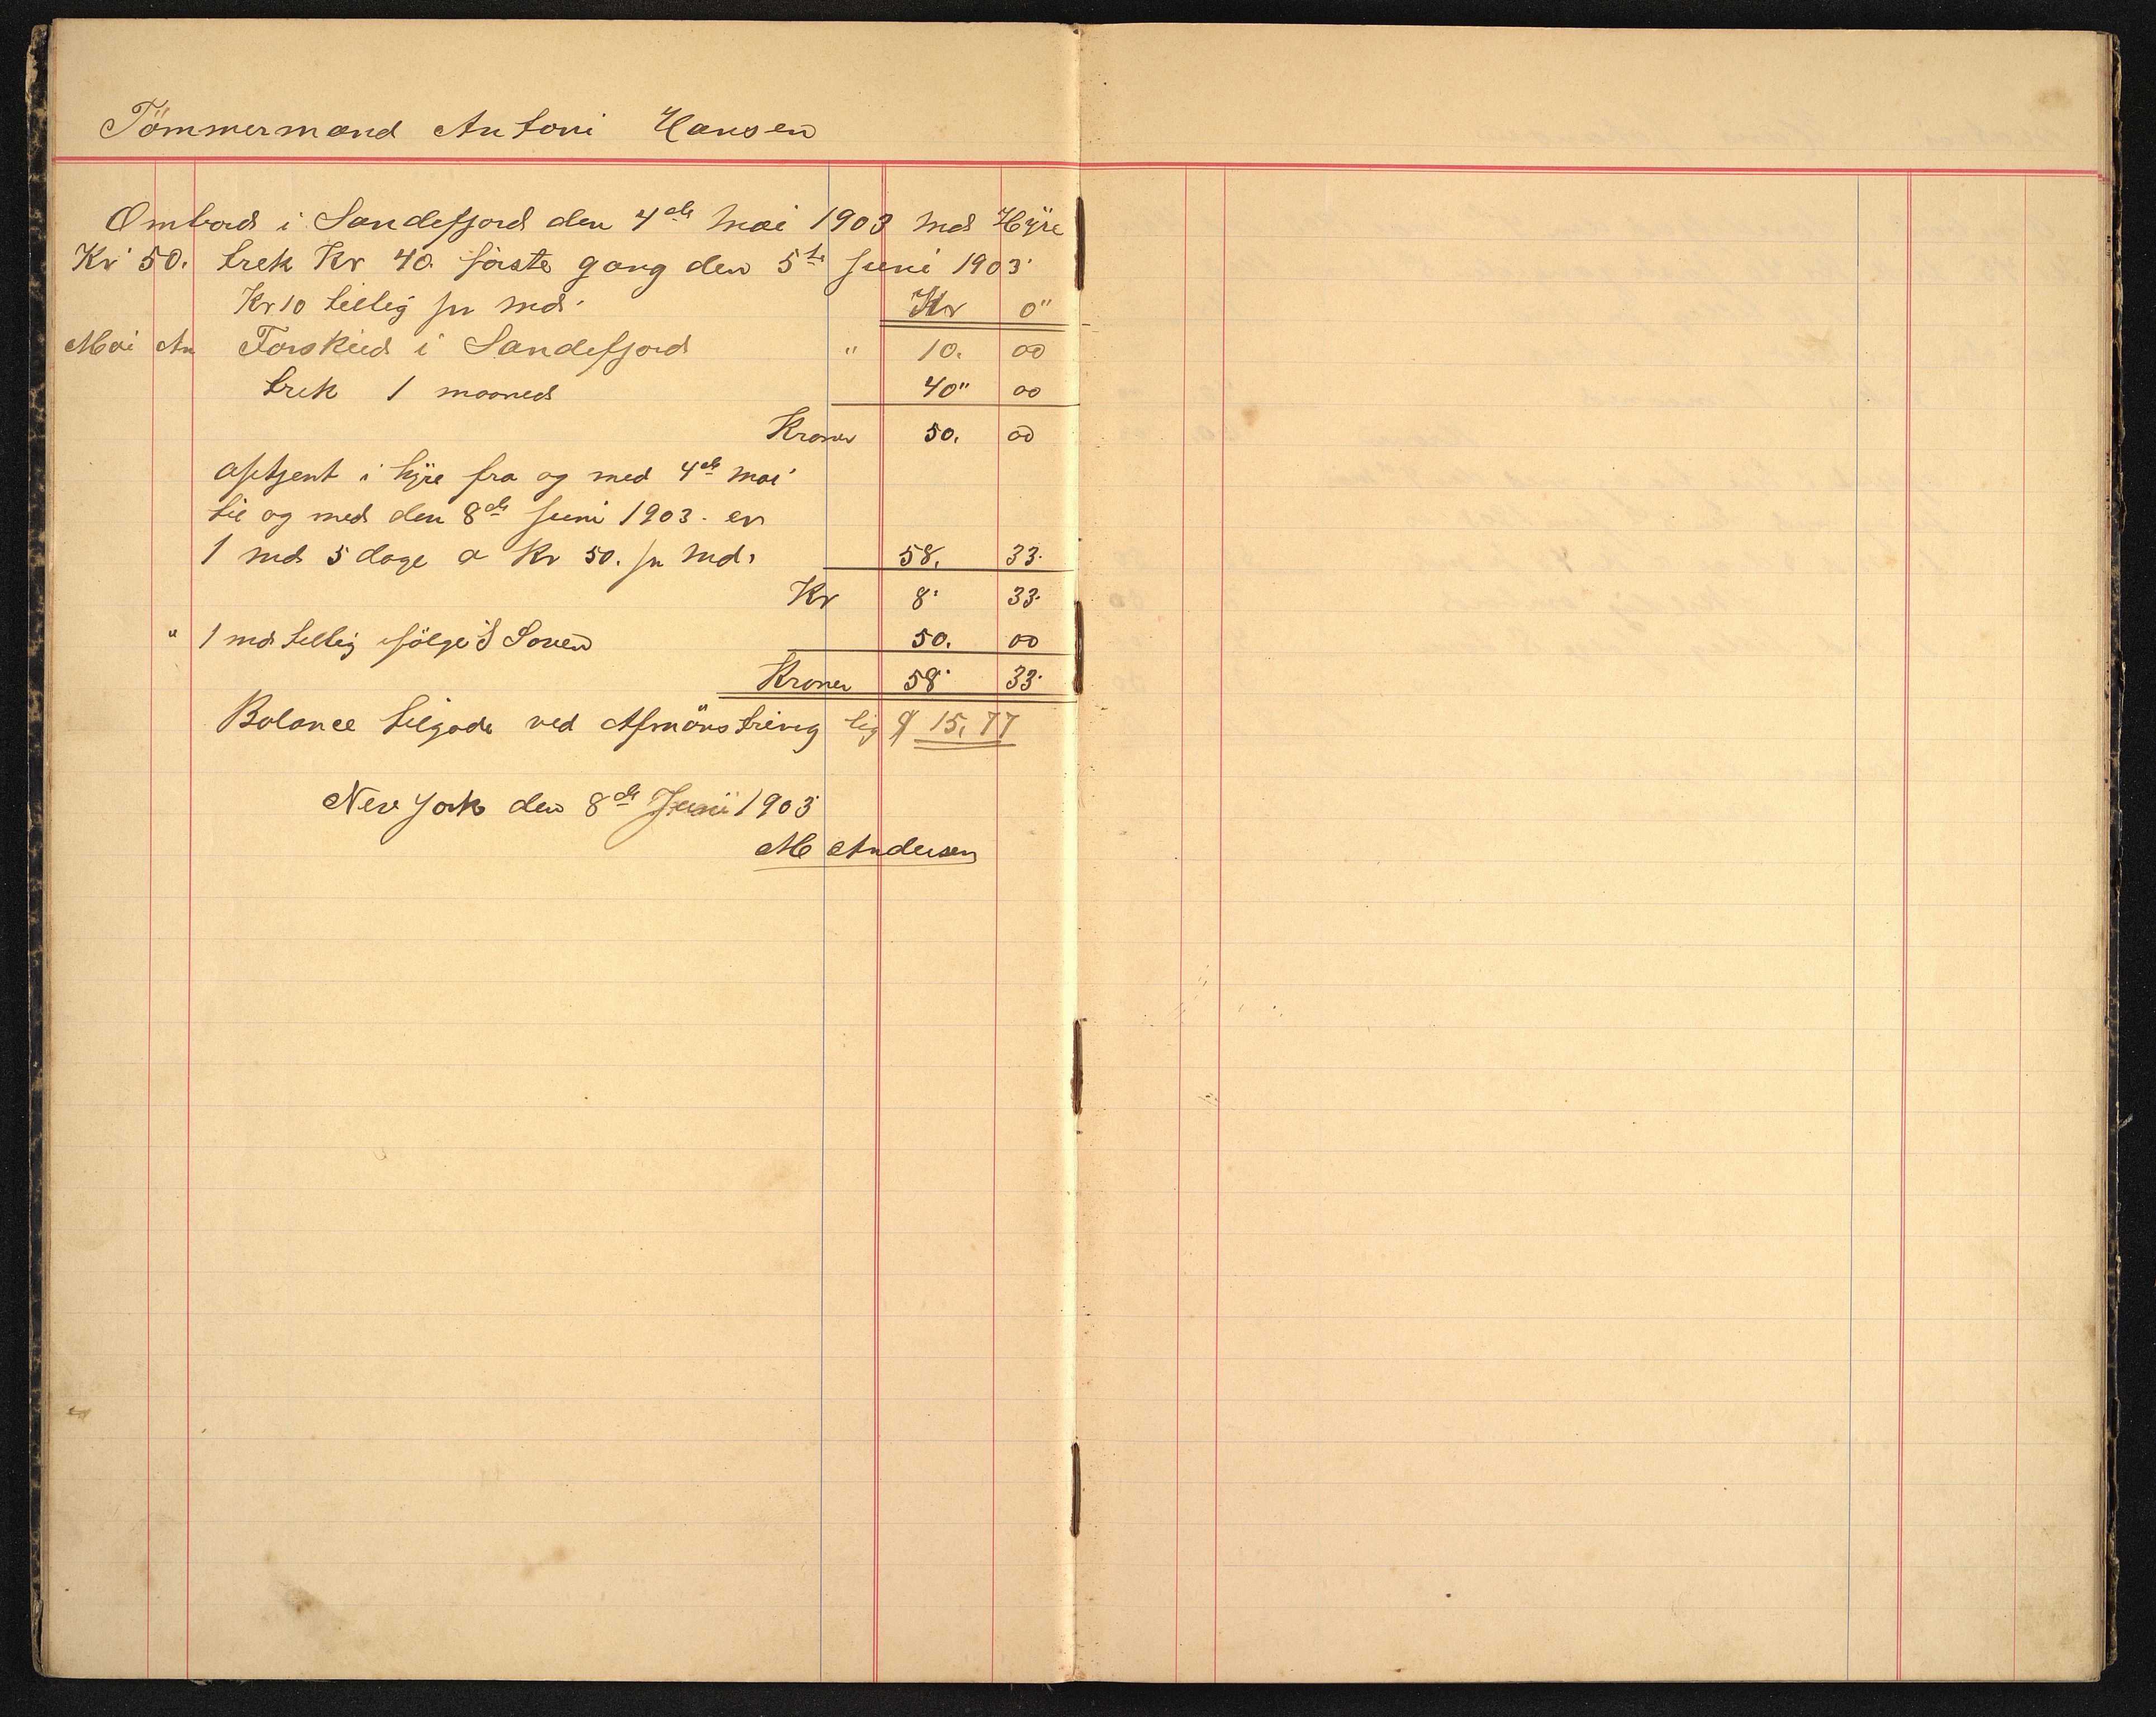 Tömmermand Antoni Hansen
Ombord i Sandefjord den 4de Mai 1903 Md Hÿre
Kr 50. trek Kr 40. förste gang den 5te Juni 1903
Kr 10 tillig pr Md. Kr 0"
Mai An Forskud i Sandefjord " 10. 00
trek 1 maaned 40" 00
Kroner 50. 00
Aftjent i hÿre fra og med 4de Mai
til og med den 8de Juni 1903. er
1 md 5 dage a Kr 50. pr Md. 58. 33.
Kr 8. 33.
" 1 md tillig ifölge S Loven 50. 00
Kroner 58. 33.
Balance tilgode ved Afmönstring lig $ 15,77
New York den 8de Juni 1903
M Andersen